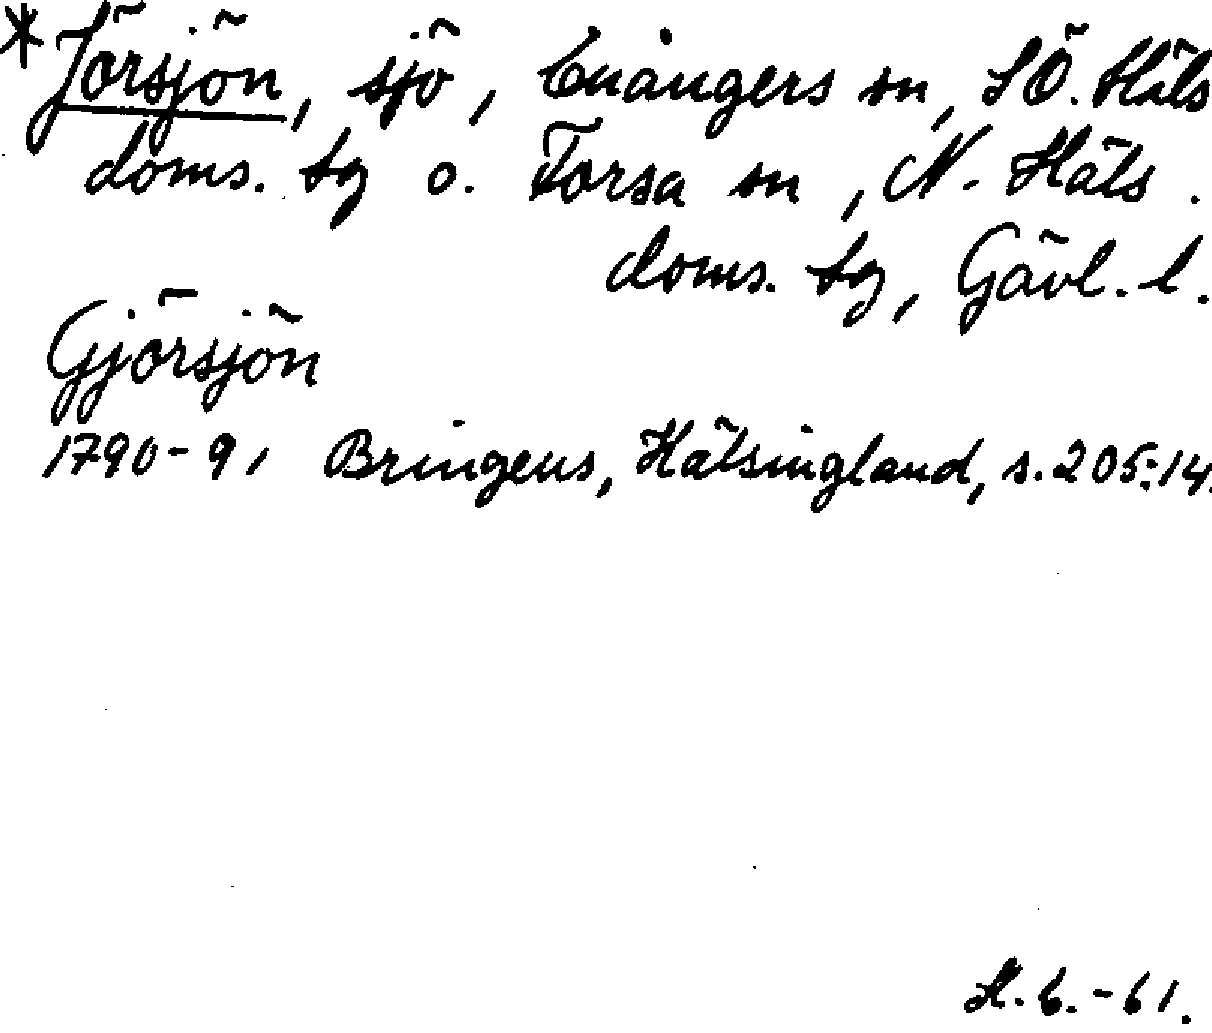 * Jörsjön, sjö, Enångers sn, SÖ. Häls
doms. sg o. Forsa sn, N. Häls.
doms. sg, Gävl. l.
Gjörsjön
1790-91 Bringeus, Hälsingland, s. 205:14.